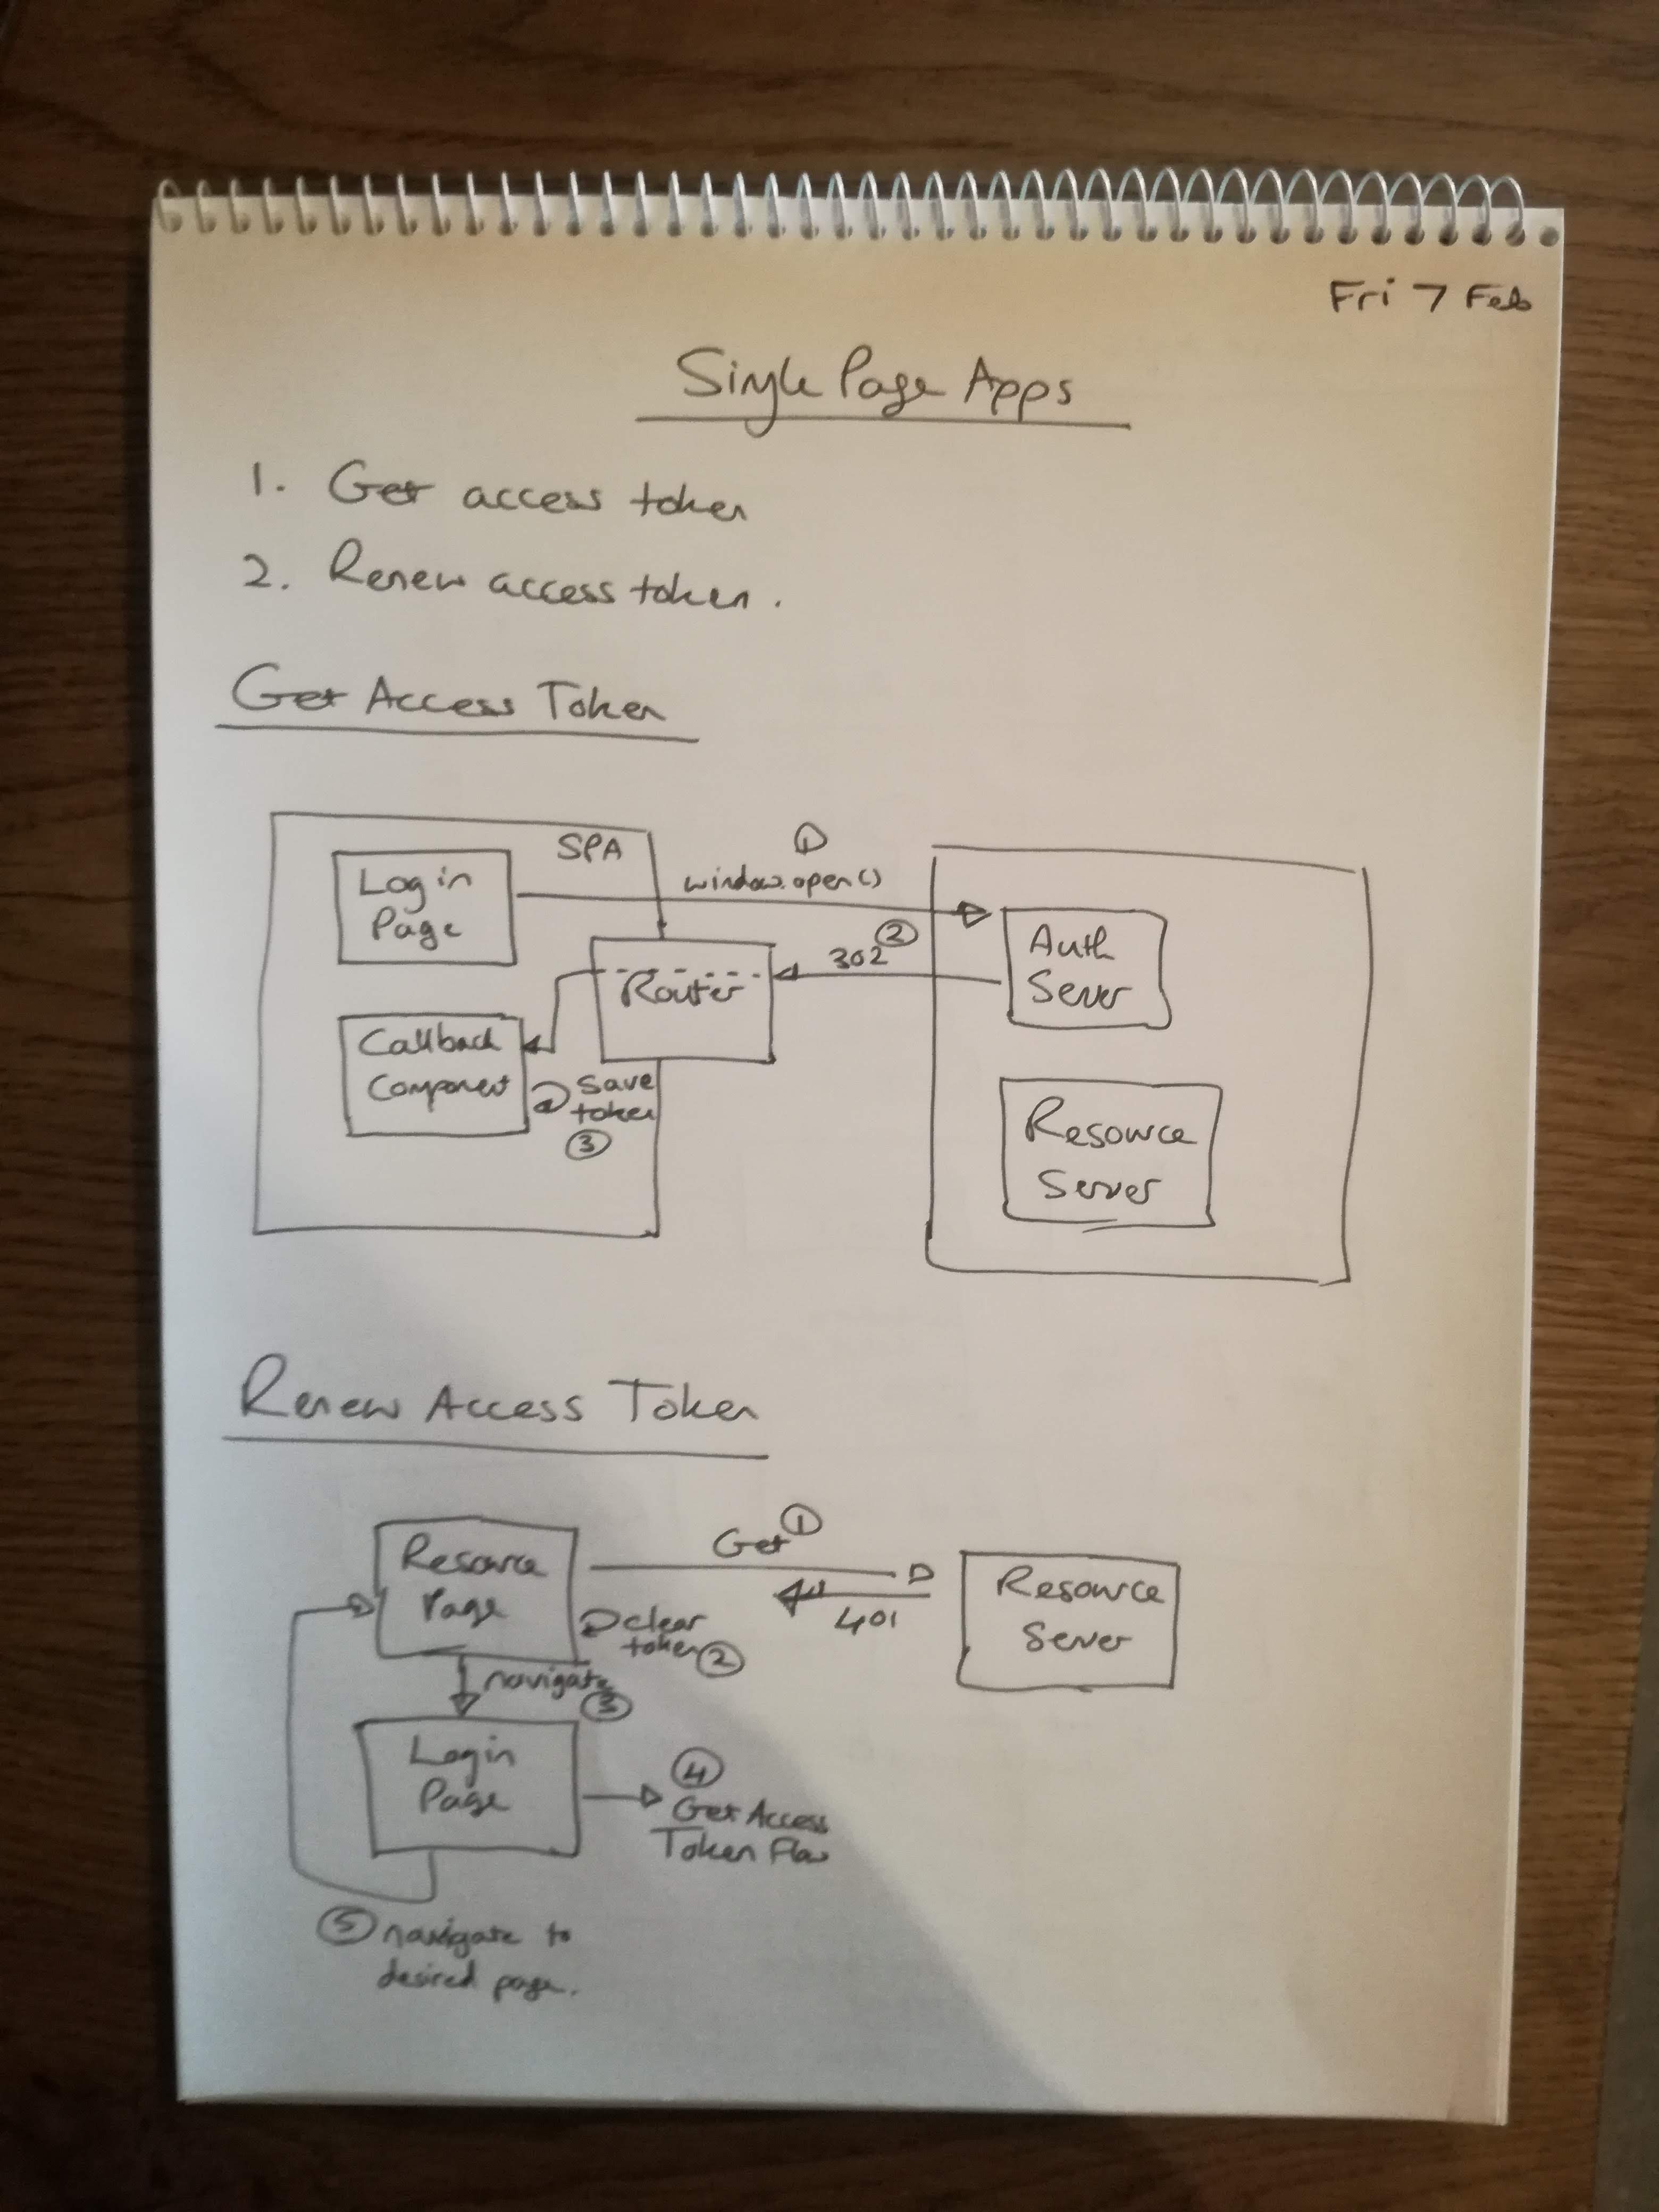 Fri 7 Feb
Single Page Apps
1. Get access token
2. Renew access token.
Get Access Token
SPA
Login
Page
1
window.open()
Auth
Server
2
302
Router
Callback
Component
Save
token
3
Resource
Server
Renew Access Token
Resource
Page
Get 1
401
Resource
Server
clear
token 2
navigate
3
Login
Page
4
Get Access
Token Flow
5 navigate to
desired page.